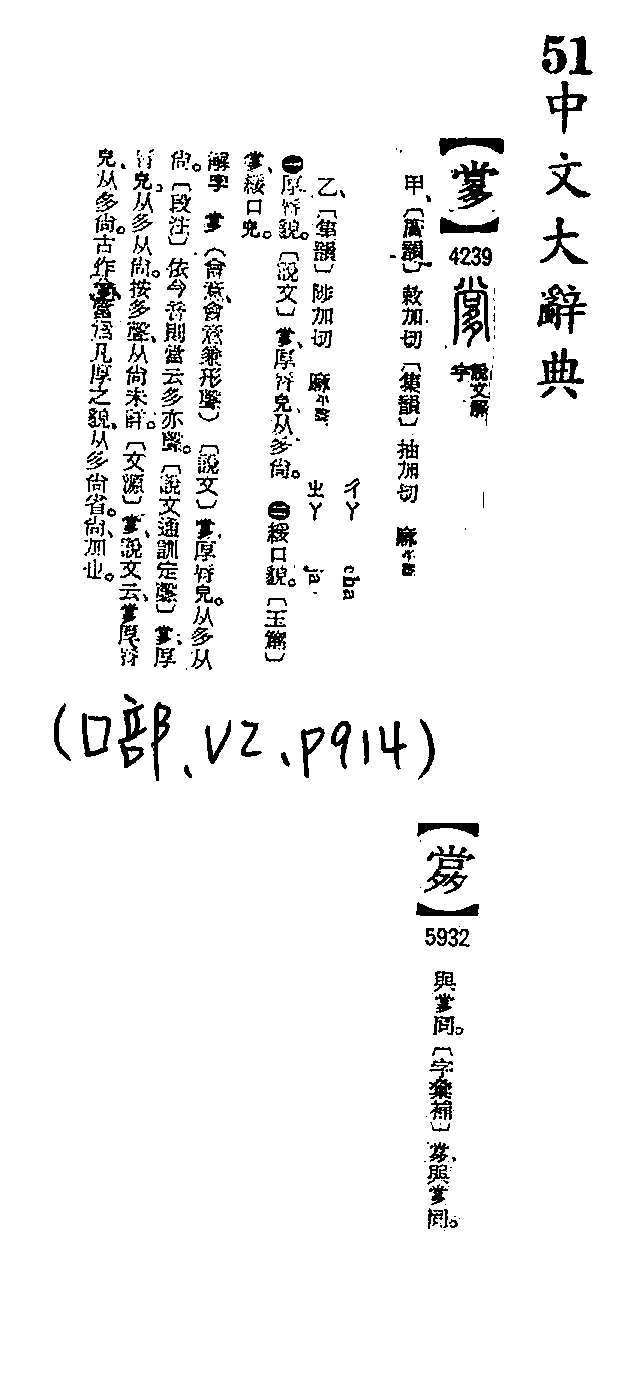 51中文大辭典
【㗬】
4239
說文解
字
甲、〔廣韻〕敕加切〔集韻〕抽加切 麻平聲
ㄔㄚ cha
乙、〔集韻〕陟加切 麻平聲
ㄓㄚ ja
㊀厚脣貌。〔說文〕㗬、厚脣皃、从多尙。㊁緩口貌。〔玉篇〕
㗬、緩口皃。
解字 㗬（會意、會意兼形聲）〔說文〕㗬、厚脣皃。从多从
尙。〔段注〕依今音則當云多亦聲。〔說文通訓定聲〕㗬、厚
脣皃。从多从尙。按多聲、从尙未詳。〔文源〕㗬、說文云、㗬厚脣
皃、从多尙。古作當爲凡厚之貌、从多尙省。尙、加也。
（口部、V2、P914）
5932
與㗬同。〔字彙補〕與㗬同。